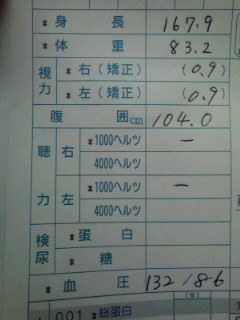 * 身長 167.9
* 体重 83.2
視力 * 右(矯正) (0.9)
* 左(矯正) (0.9)
腹囲cm 104.0
聴力 右 *1000ヘルツ —
4000ヘルツ
左 *1000ヘルツ —
4000ヘルツ
検尿 * 蛋白
* 糖
* 血圧 132/86
001 *総蛋白